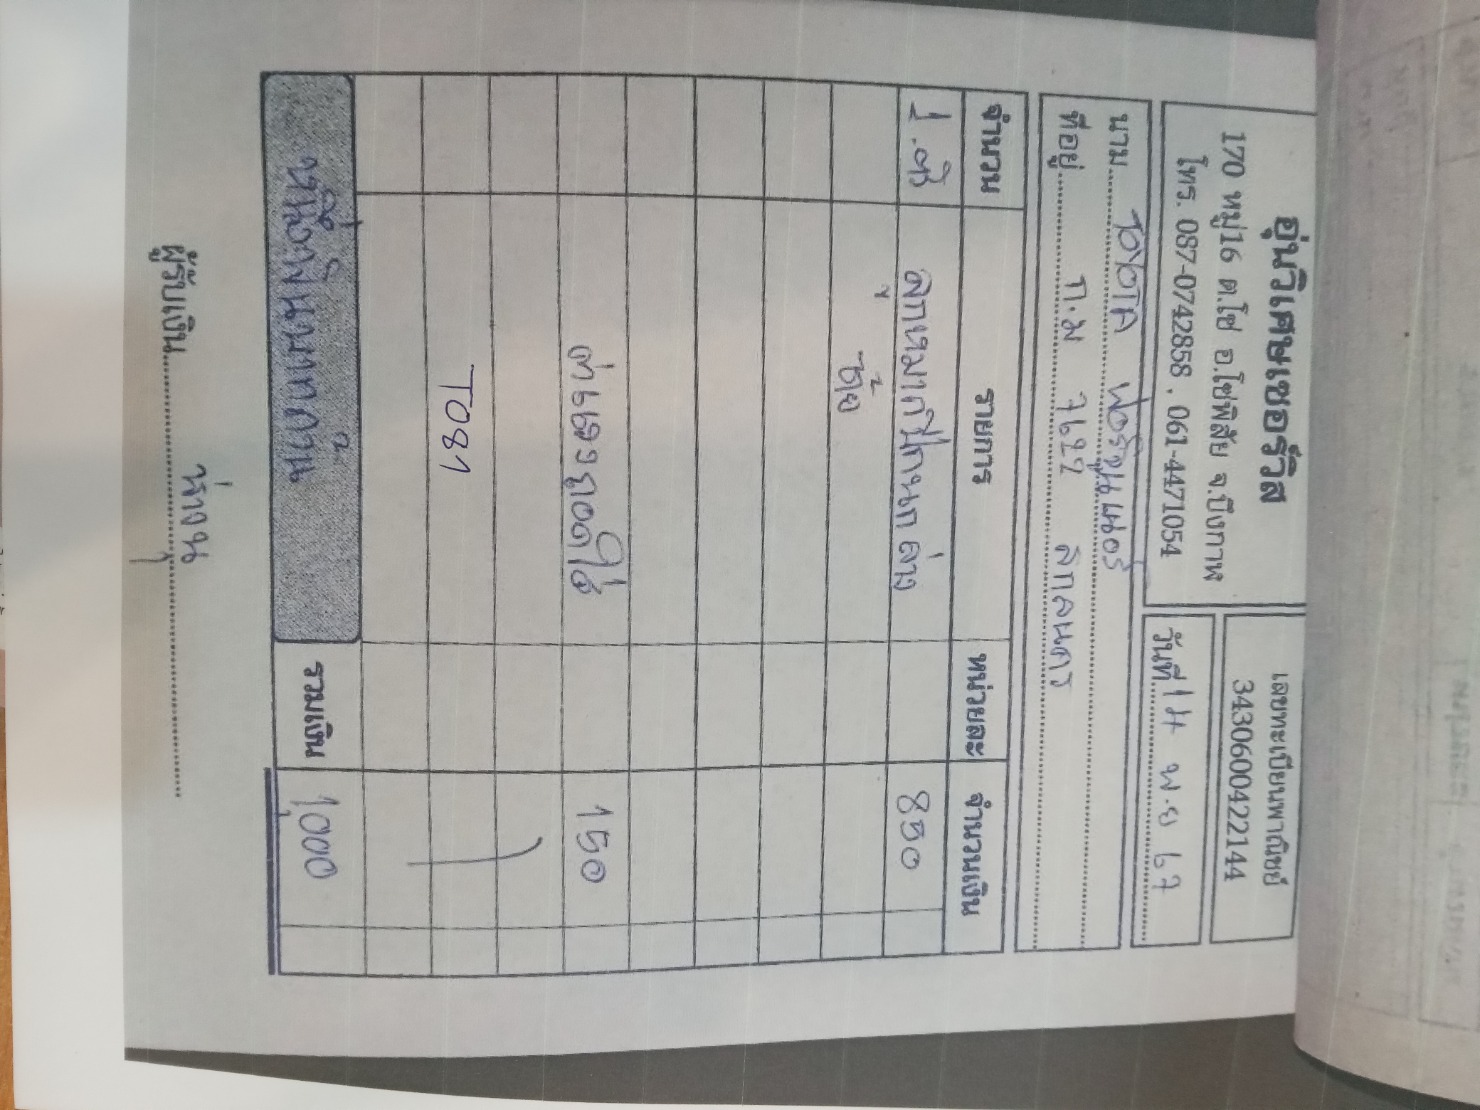 อุ่นวิเศษเซอร์วิส
170 หมู่16 ต.โซ่ อ.โซ่พิสัย จ.บึงกาฬ
โทร. 087-0742858 . 061-4471054
เลขทะเบียนพาณิชย์
3430600422144
วันที่ 14 พ.ย 67
นาม TOYOTA ฟอร์จูนเนอร์
ที่อยู่ ก.ม 7622 สกลนคร
จำนวน รายการ หน่วยละ จำนวนเงิน
1.ตัว ลูกหมากปีกนกล่าง 850
ซ้าย
ค่าแรงถอดใส่ 150
TO81
หนึ่งพันบาทถ้วน รวมเงิน 1,000
ผู้รับเงิน